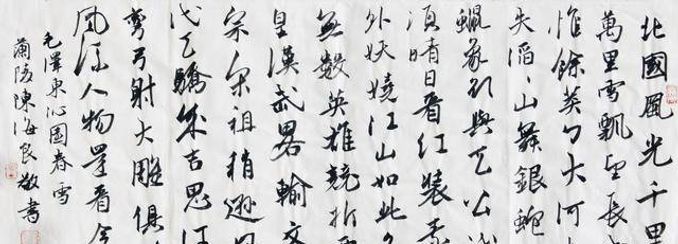 北國風光千里
萬里雪飄望長
惟餘莽々大河
失滔々山舞銀蛇
蠟象欲與天公
須晴日看紅裝素
外妖嬈江山如此
無數英雄競折
皇漢武畧輸文
宗宋祖稍遜
代天驕成吉思汗
彎弓射大雕俱
風流人物還看今
毛澤東沁園春雪
蘭陵陳海良敬書